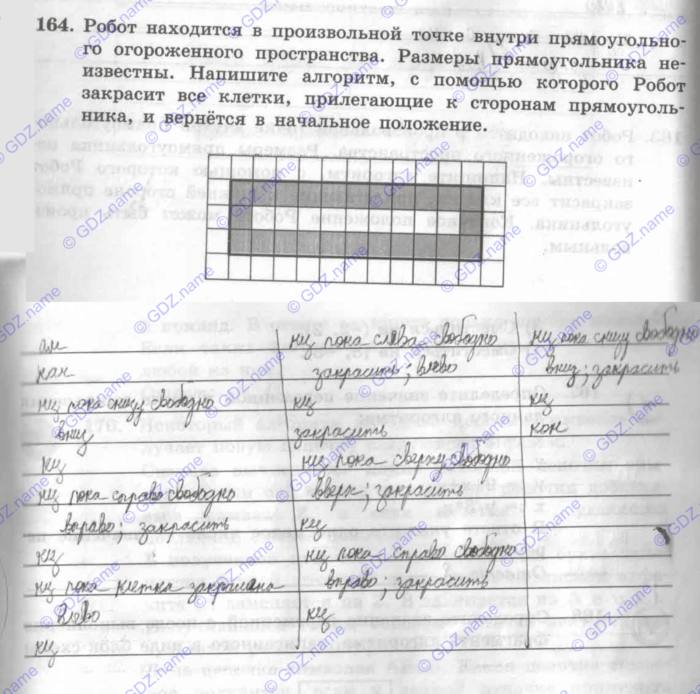 164. Робот находится в произвольной точке внутри прямоугольно-
го огороженного пространства. Размеры прямоугольника не-
известны. Напишите алгоритм, с помощью которого Робот
закрасит все клетки, прилегающие к сторонам прямоуголь-
ника, и вернётся в начальное положение.
алг
нач
нц пока снизу свободно
вниз
кц
нц пока справо свободно
вправо; закрасить
кц
нц пока клетка закрашена
влево
кц
нц пока слева свободно
закрасить; влево
кц
закрасить
нц пока сверху свободно
вверх; закрасить
кц
нц пока справо свободно
вправо; закрасить
кц
нц пока снизу свободно
вниз; закрасить
кц
кон
© GDZ.name